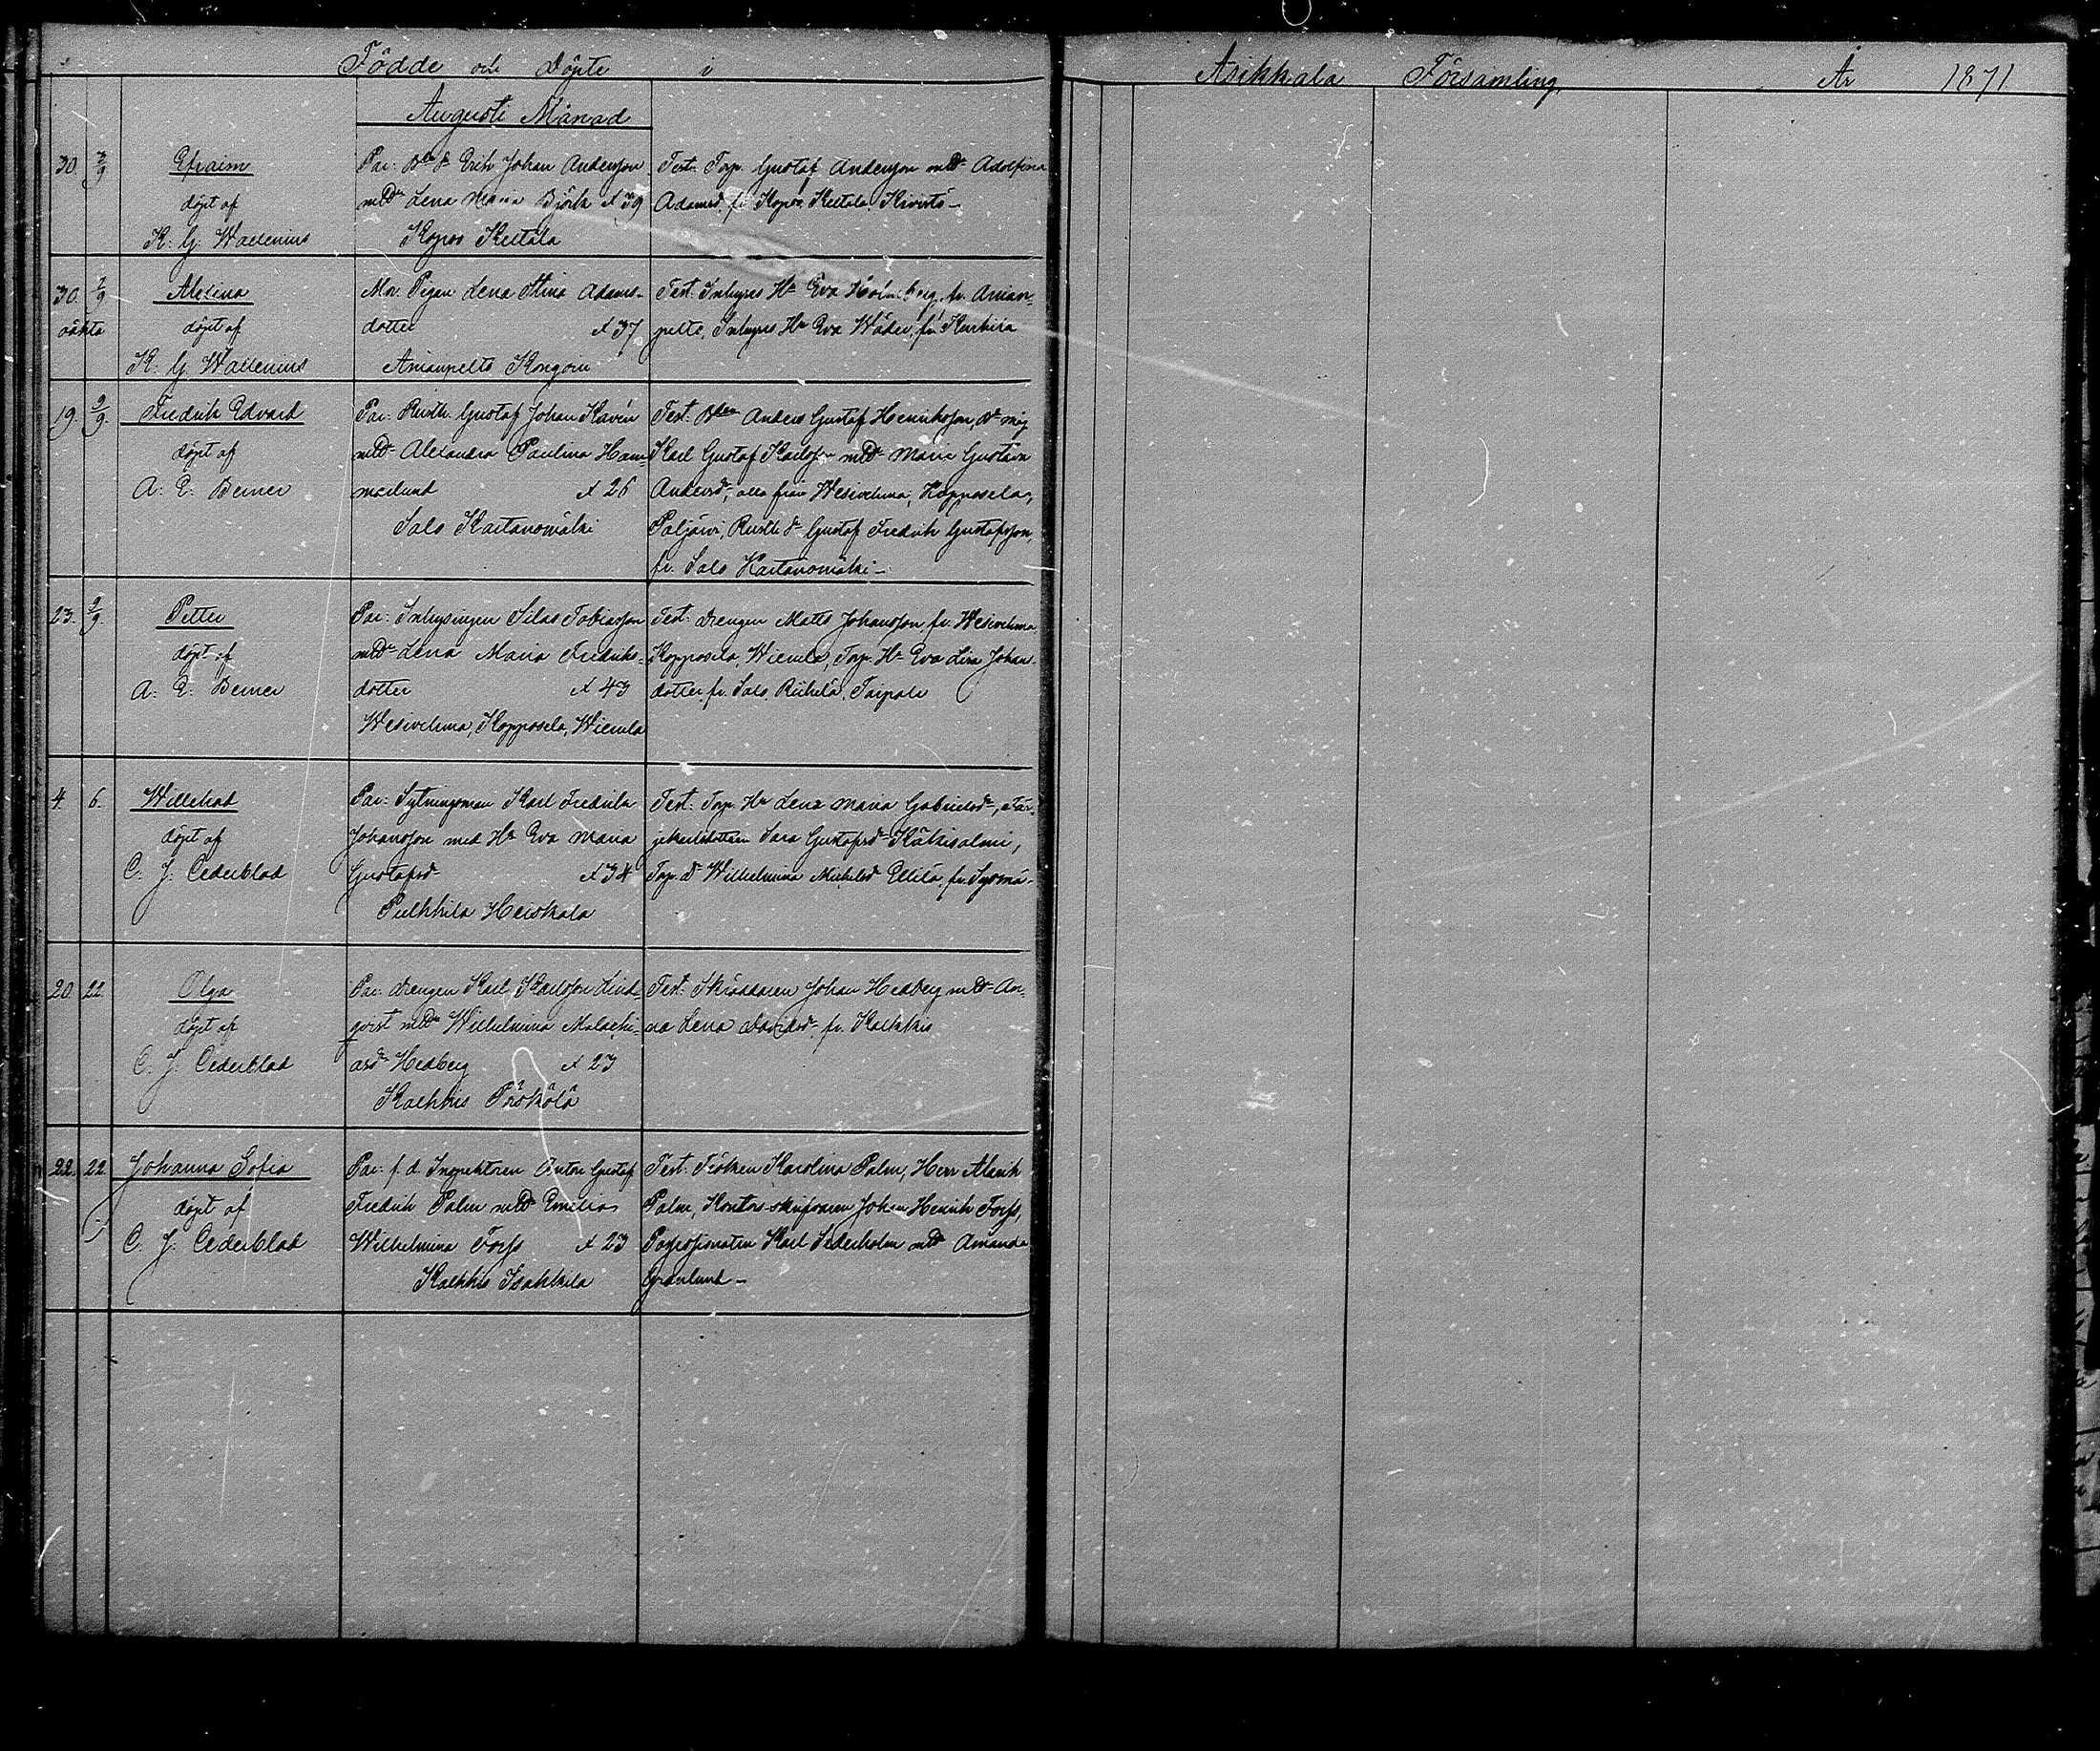 Födde och Döpte i Asikkala Församling År 1871
Augusti Månad
30. 3/9 Efraim
döpt af
K: G: Wallenius
Par: Erik Johan Andersson
med Lena Maria Björk 39
Kopos Keltala
Test. Torp. Gustaf Andersson med Adolfina
Adamsd. fr. Kopos Keltala, Kivistö –
30. 7/9 Alexina
oäkta döpt af
K: G: Wallenius
Mor. Pigan Lena Stina Adams-
dotter 37
Anianpelto Kongoin
Test. Inhyses Hu Eva Holmberg, fr. Anian-
pelto, Inhyses Hu Eva fr. Kurhila
19. 9/9. Fredrik Edvard
döpt af
A: E: Berner
Par: Rusth. Gustaf Johan Kavén
med Alexandra Paulina Ham-
marlund 26
Salo Kartanomäki
Test: Anders Gustaf Henriksson,
Karl Gustaf Karlsson med Maria Gustava
Andersd, alla från Wesivehma, Kopposela,
Paljärvi, Rusth. d. Gustaf Fredrik Gustafsson,
fr. Salo Kartanomäki –
23. 9/9. Petter
döpt af
A: E: Berner
Par: Inhysingen Silas Tobiasson
med Lena Maria Fredriks-
dotter 43
Wesivehma, Kopposela, Wiemla
Test: drengen Matts Johansson, fr. Wesivehma
Kopposela, Wiemla, Torp. Hu Eva Lisa Johans-
dotter fr. Salo, Riihelä, Taipale
4. 6. Willehad
döpt af
C. J. Cederblad
Par: Sytningsman Karl Fredrik
Johansson med Hu Eva Maria
Gustafsd 34
Pulkkila Heiskala
Test: Torp. Hu Lena Maria Gabrielsd,
Sara Gustafsd Käkisalmi,
Torp. d. Wilhelmina Michelsd fr. Sysmä –
20. 22. Olga
döpt af
C. J. Cederblad
Par: drengen Karl Karlsson Lind-
qvist med Wilhelmina Malachi-
asd Hedberg 23
Kalkkis Pöskölä
Test: Skräddaren Johan Hedberg med An-
na Lena Davidsd fr. Kalkkis
22. 22. Johanna Sofia
döpt af
C. J. Cederblad
Par: f. d. Inspektoren Anton Gustaf
Fredrik Palm med Emilia
Wilhelmina Forss 23
Kalkkis Isakkila
Test: Fröken Karolina Palm, Herr Alarik
Palm, Kontors-skrifvaren Johan Henrik Forss,
Possessionaten Karl Sederholm med Amanda
Grönlund –